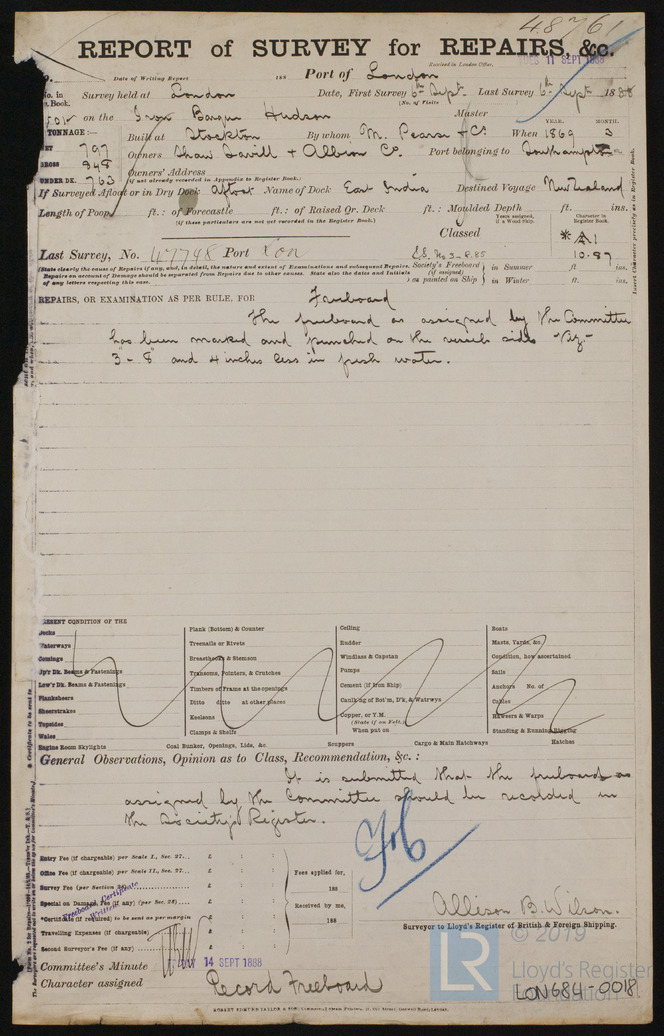 48761
REPORT of SURVEY for REPAIRS, &c.
Received in London Office,
TUES 11 SEPT 1888
Date of Writing Report 188 Port of London
No. in Reg. Book. Survey held at London Date, First Survey 6th Sept. Last Survey 6th Sept. 1888
(No. of Visits
on the Iron Barque Hudson Master
YEAR. MONTH.
TONNAGE:— Built at Stockton By whom M. Pearse & Co. When 1869 3
NET 797
GROSS 848
Owners Shaw Savill & Albion Co. Port belonging to Southampton
Owners' Address
(if not already recorded in Appendix to Register Book.)
UNDER DK. 763
If Surveyed Afloat or in Dry Dock Afloat Name of Dock East India Destined Voyage New Zealand
Length of Poop ft. : of Forecastle ft. : of Raised Qr. Deck ft. : Moulded Depth ft. ins.
(if these particulars are not yet recorded in the Register Book.)
Years assigned, if a Wood Ship.
Character in Register Book.
Classed
*A1
10.87
Last Survey, No. 47748 Port Lon
(State clearly the cause of Repairs if any, and, in detail, the nature and extent of Examinations and subsequent Repairs.
Repairs on account of Damage should be separated from Repairs due to other causes. State also the dates and Initials
of any letters respecting this case.
Society's Freeboard (if assigned) as painted on Ship
in Summer ft ins.
in Winter ft. ins.
Insert Character precisely as in Register Book.
REPAIRS, OR EXAMINATION AS PER RULE, FOR Freeboard
The freeboard as assigned by the Committee
has been marked and punched on the vessels sides Viz-
3 - 8" and 4 inches less in fresh water.
PRESENT CONDITION OF THE
Decks
Waterways
Comings
Up'r Dk. Beams & Fastenings
Low'r Dk. Beams & Fastenings
Planksheers
Sheerstrakes
Topsides
Wales
Engine Room Skylights
Plank (Bottom) & Counter
Treenails or Rivets
Breasthooks & Stemson
Transoms, Pointers, & Crutches
Timbers of Frame at the openings
Ditto ditto at other places
Keelsons
Clamps & Shelfs
Coal Bunker, Openings, Lids, &c.
Ceiling
Rudder
Windlass & Capstan
Pumps
Cement (if Iron Ship)
Caulking of Bot'm, D'k, & Watrwys
Copper, or Y.M.
(State if on Felt.)
When put on
Scuppers
Cargo & Main Hatchways
Boats
Masts, Yards, &c.
Condition, how ascertained
Sails
Anchors No. of
Cables
Hawsers & Warps
Standing & Running Rigging
Hatches
General Observations, Opinion as to Class, Recommendation, &c. :
It is submitted that the freeboard as
assigned by the Committee should be recorded in
the Society's Register.
Entry Fee (if chargeable) per Scale I., Sec. 27... £ : :
Office Fee (if chargeable) per Scale II., Sec. 27... £ : :
Survey Fee (per Section 28) £ : :
Special on Damage Fee (if any) (per Sec. 28) £ : :
*Certificate (if required) to be sent as per margin £ : :
Travelling Expenses (if chargeable) £ : :
Second Surveyor's Fee (if any) £ : :
Freeboard Certificate
Written
Fees applied for,
188
Received by me,
188
Allison B. Wilson.
Surveyor to Lloyd's Register of British & Foreign Shipping.
Committee's Minute FRIDAY 14 SEPT 1888
Character assigned Record Freeboard
© 2019
LR
Lloyd's Register
Foundation
LON684-0018